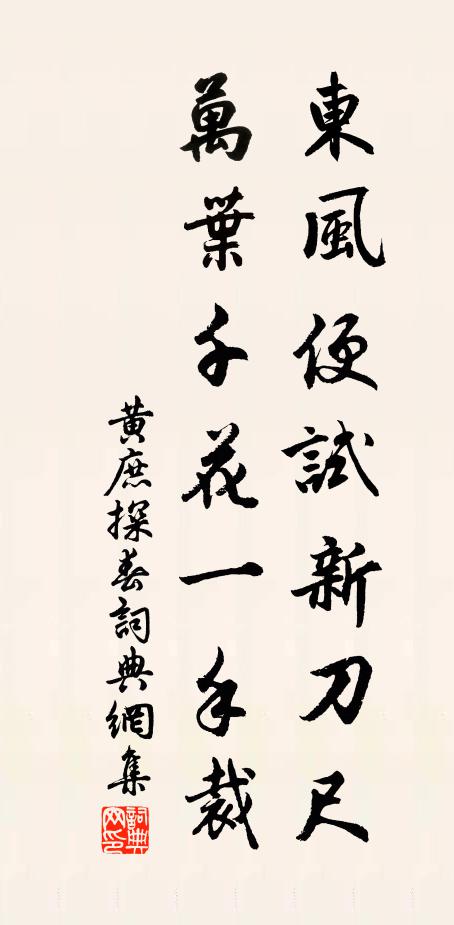 東風便試新刀尺
萬葉千花一手裁
黄庶探春詞典網集
詞典网印